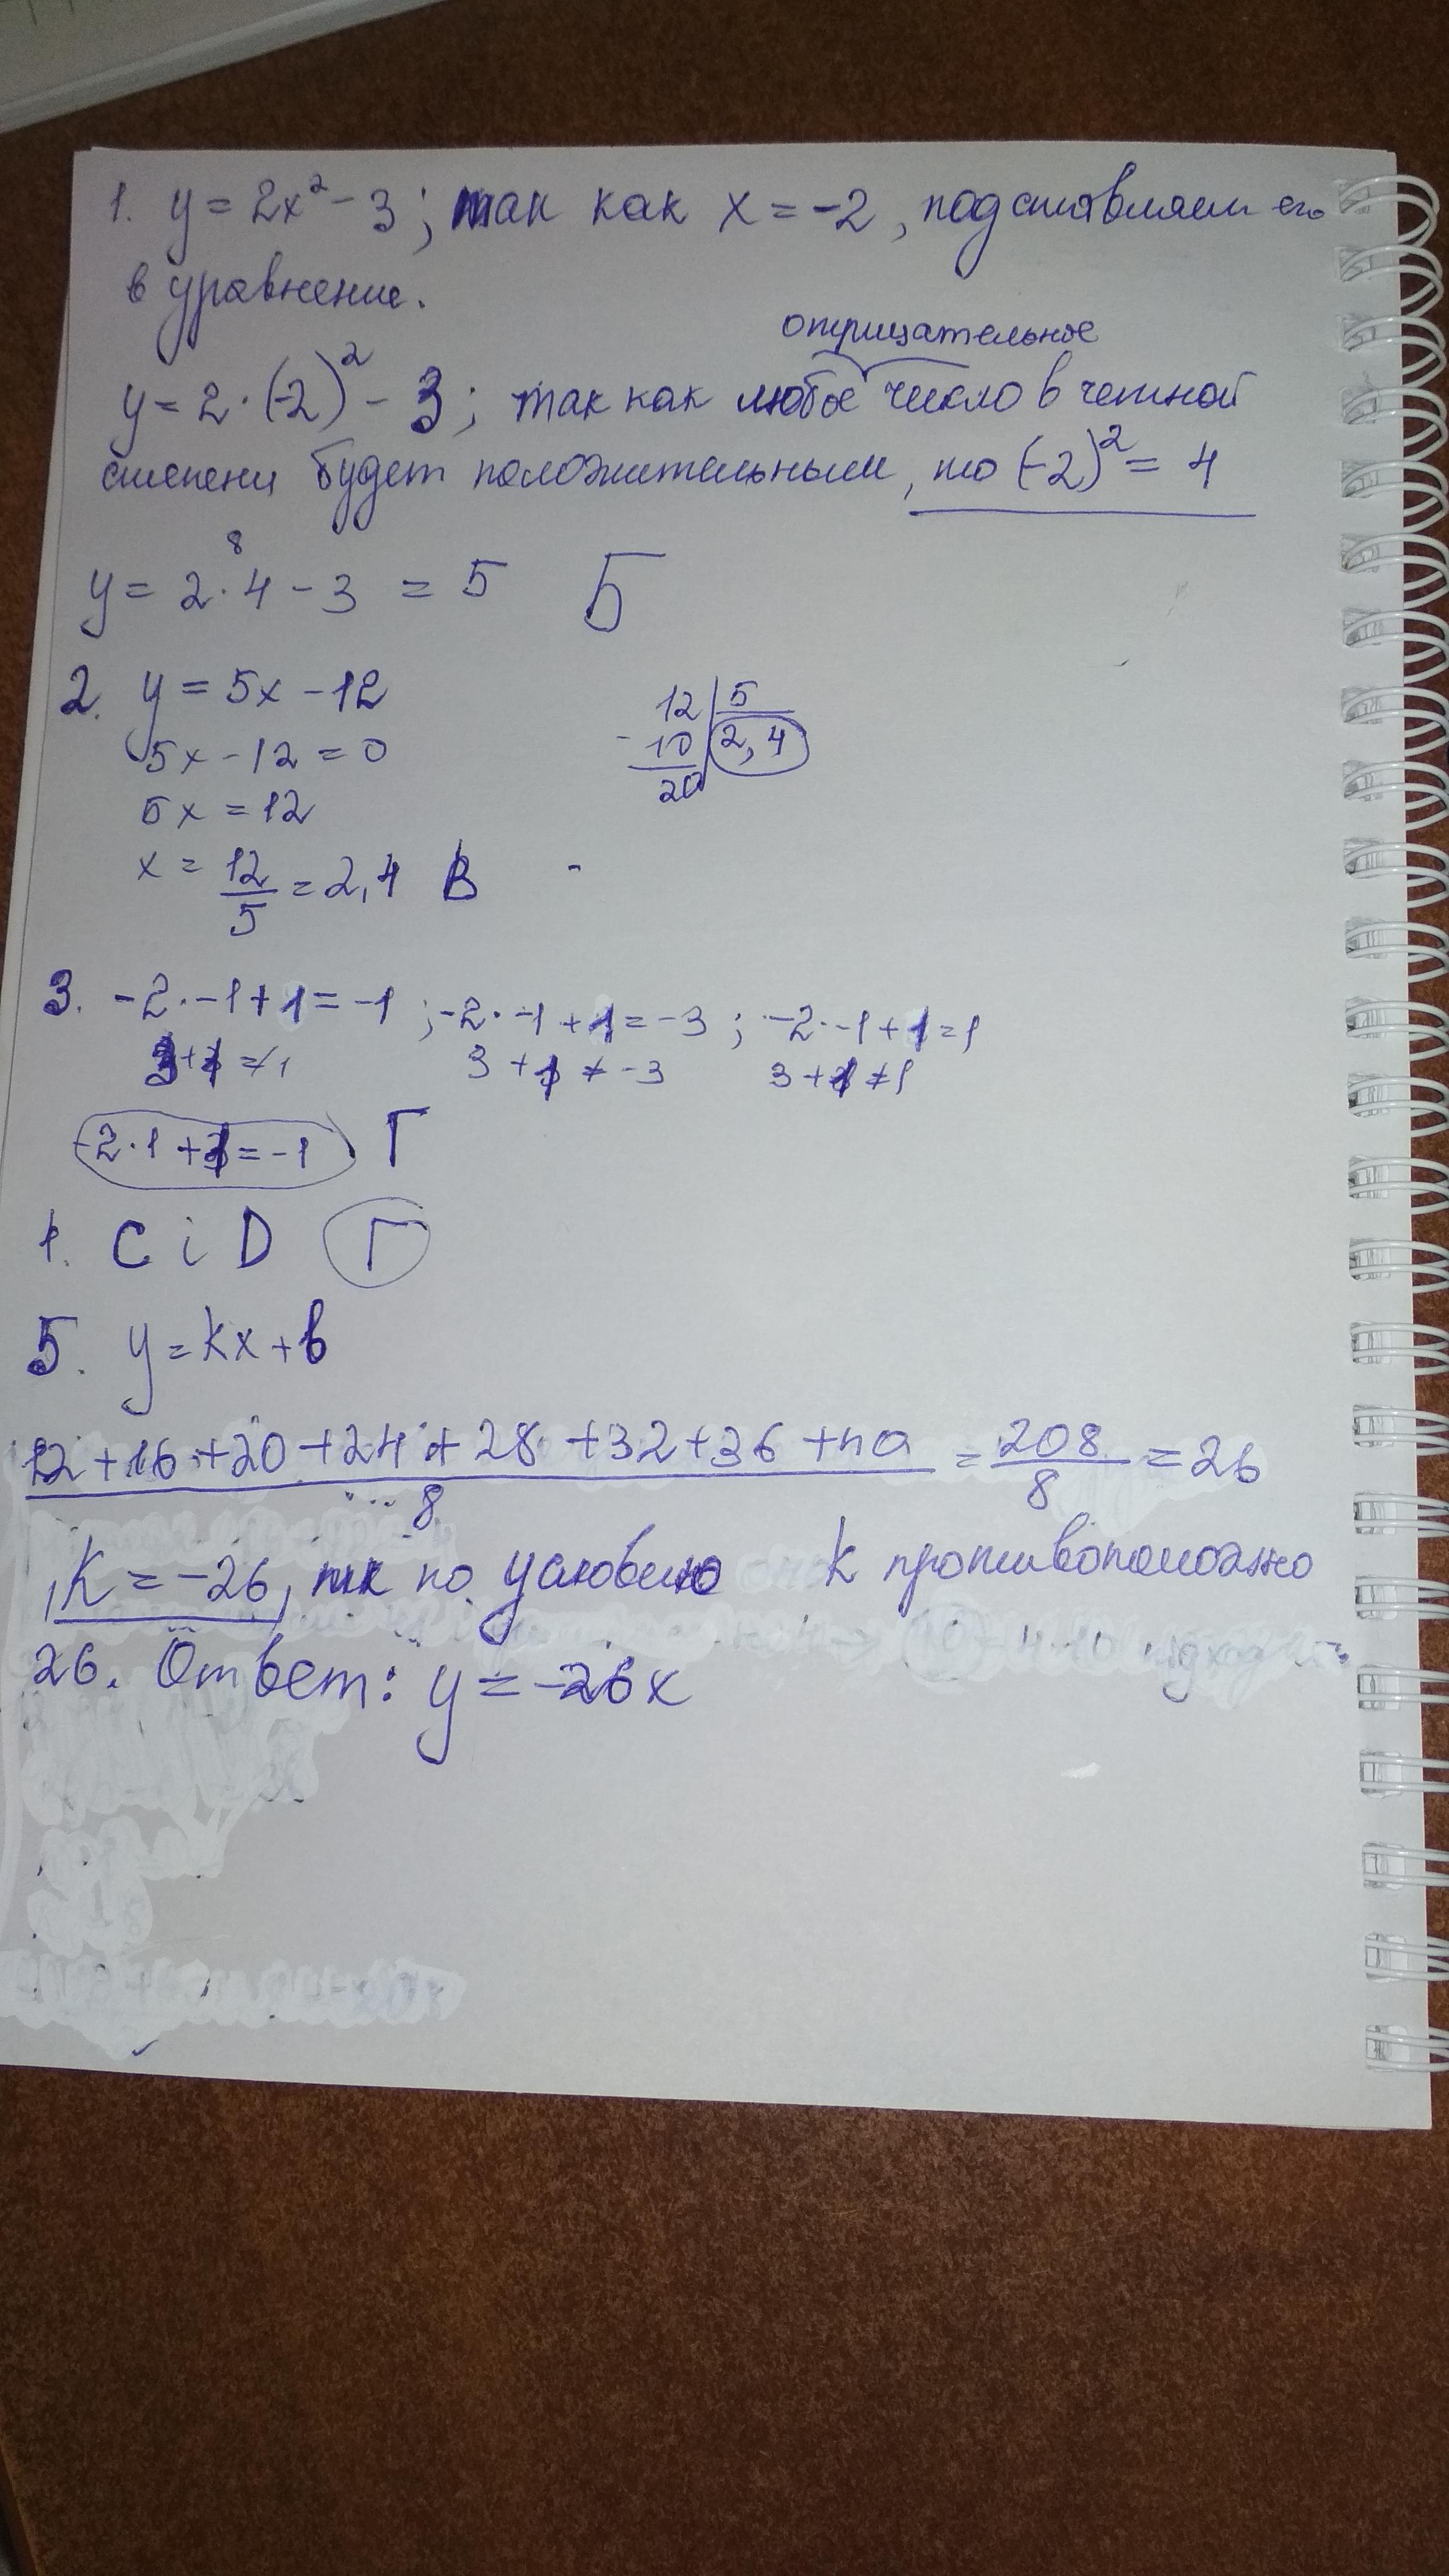 1. y = 2x² - 3; так как x = -2, подставляем его
в уравнение.
отрицательное
y = 2·(-2)² - 3; так как любое число в четной
степени будет положительным, то (-2)² = 4
8
y = 2·4 - 3 = 5 Б
2. y = 5x - 12
5x - 12 = 0
5x = 12
x = 12/5 = 2,4 В
12 | 5
- 10 | 2,4
20
3. -2·-1+1=-1 ; -2·-1+1=-3 ; -2·-1+1=1
3+1≠-3 3+1≠1
-2·1+1=-1 Г
C i D Г
5. y = kx + b
12+16+20+24+28+32+36+40/8 = 208/8 = 26
, k = -26, тк по условию k противоположно
26. Ответ: y = -26x